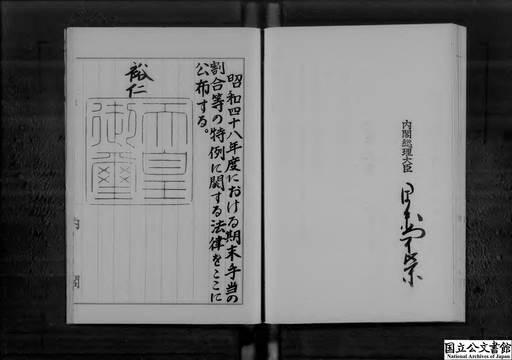 昭和四十八年度における期末手当の
割合等の特例に関する法律をここに
公布する。
裕仁
天皇
御璽
内閣
内閣総理大臣
田中角榮
国立公文書館
National Archives of Japan